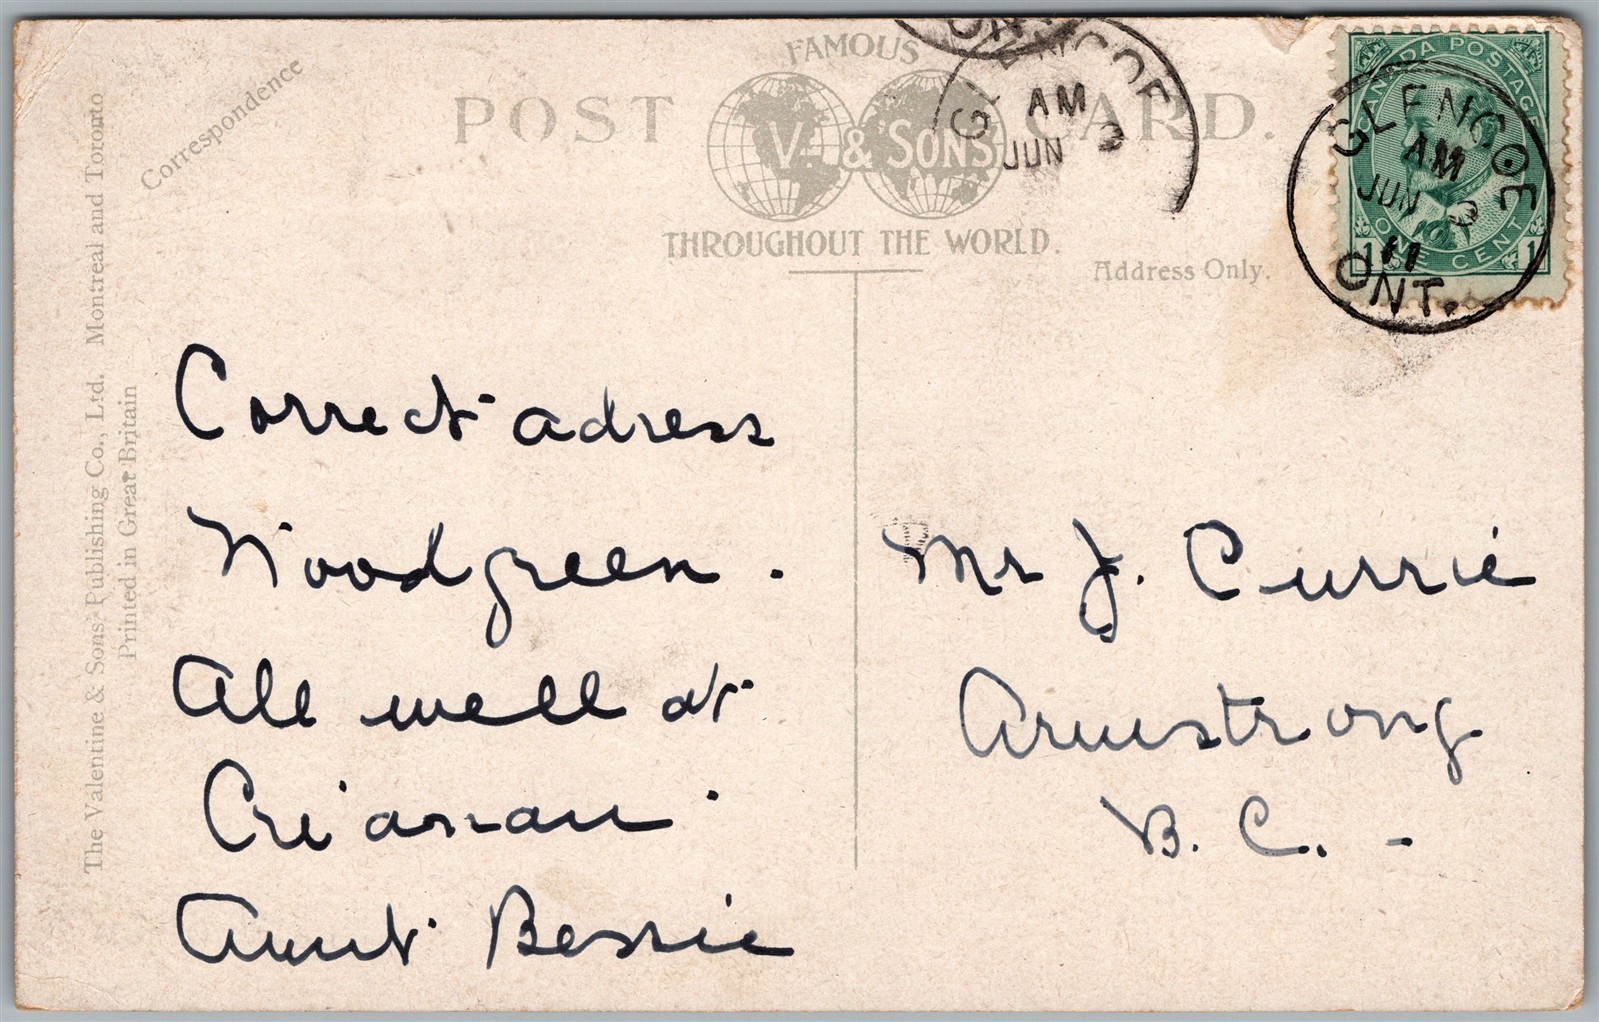 FAMOUS
POST CARD.
V. & SONS
THROUGHOUT THE WORLD.
Correspondence
Address Only.
The Valentine & Sons' Publishing Co., Ltd. Montreal and Toronto
Printed in Great Britain
CANADA POSTAGE
1 ONE CENT 1
GLENCOE
AM
JUN 3
11
ONT.
GLENCOE
AM
JUN 3
ONT
Correct adress
Woodgreen.
All well at
Aunt Bessie
Mr J. Currie
Armstrong
B. C. -